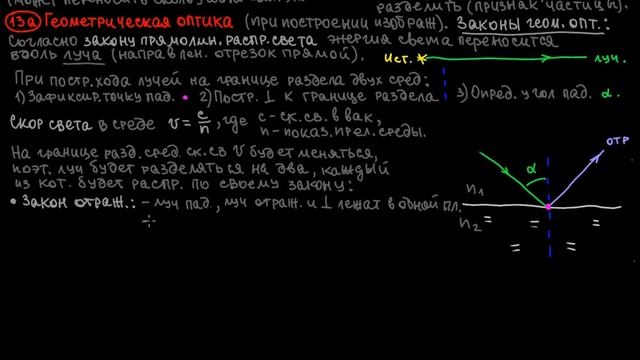 разделить (признак частицы).
13а) Геометрическая оптика (при построении изображ). Законы геом. опт.:
Согласно закону прямолин. распр. света энергия света переносится
вдоль луча (направлен. отрезок прямой).
Ист. луч.
При постр. хода лучей на границе раздела двух сред:
1) Зафиксир. точку пад. 2) Постр. ⊥ к границе раздела 3) Опред. угол пад. α.
Скор света в среде v = c/n, где c - ск. св. в вак,
n - показ. прел. среды.
На границе разд. сред ск. св v будет меняться,
поэт. луч будет разделяться на два, каждый
из кот. будет распр. по своему закону:
• Закон отраж.: - луч пад., луч отраж. и ⊥ лежат в одной пл.
α
отр
n₁
n₂